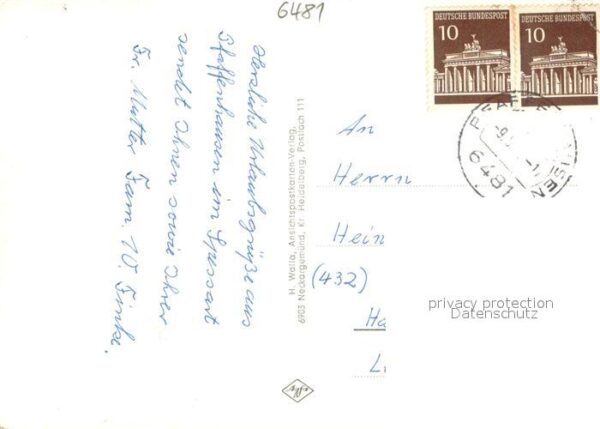 6481
DEUTSCHE BUNDESPOST
10
DEUTSCHE BUNDESPOST
10
6481
Herzliche Urlaubsgrüße aus
Pfaffenhausen im Spessart
sendet Ihnen sowie Ihrer
Fr. Mutter Fam. W. Finke.
H. Walla, Ansichtspostkarten-Verlag,
6903 Neckargemünd, Kr. Heidelberg, Postfach 111
An
Herrn
Hein
(432)
Ha
L
privacy protection
Datenschutz